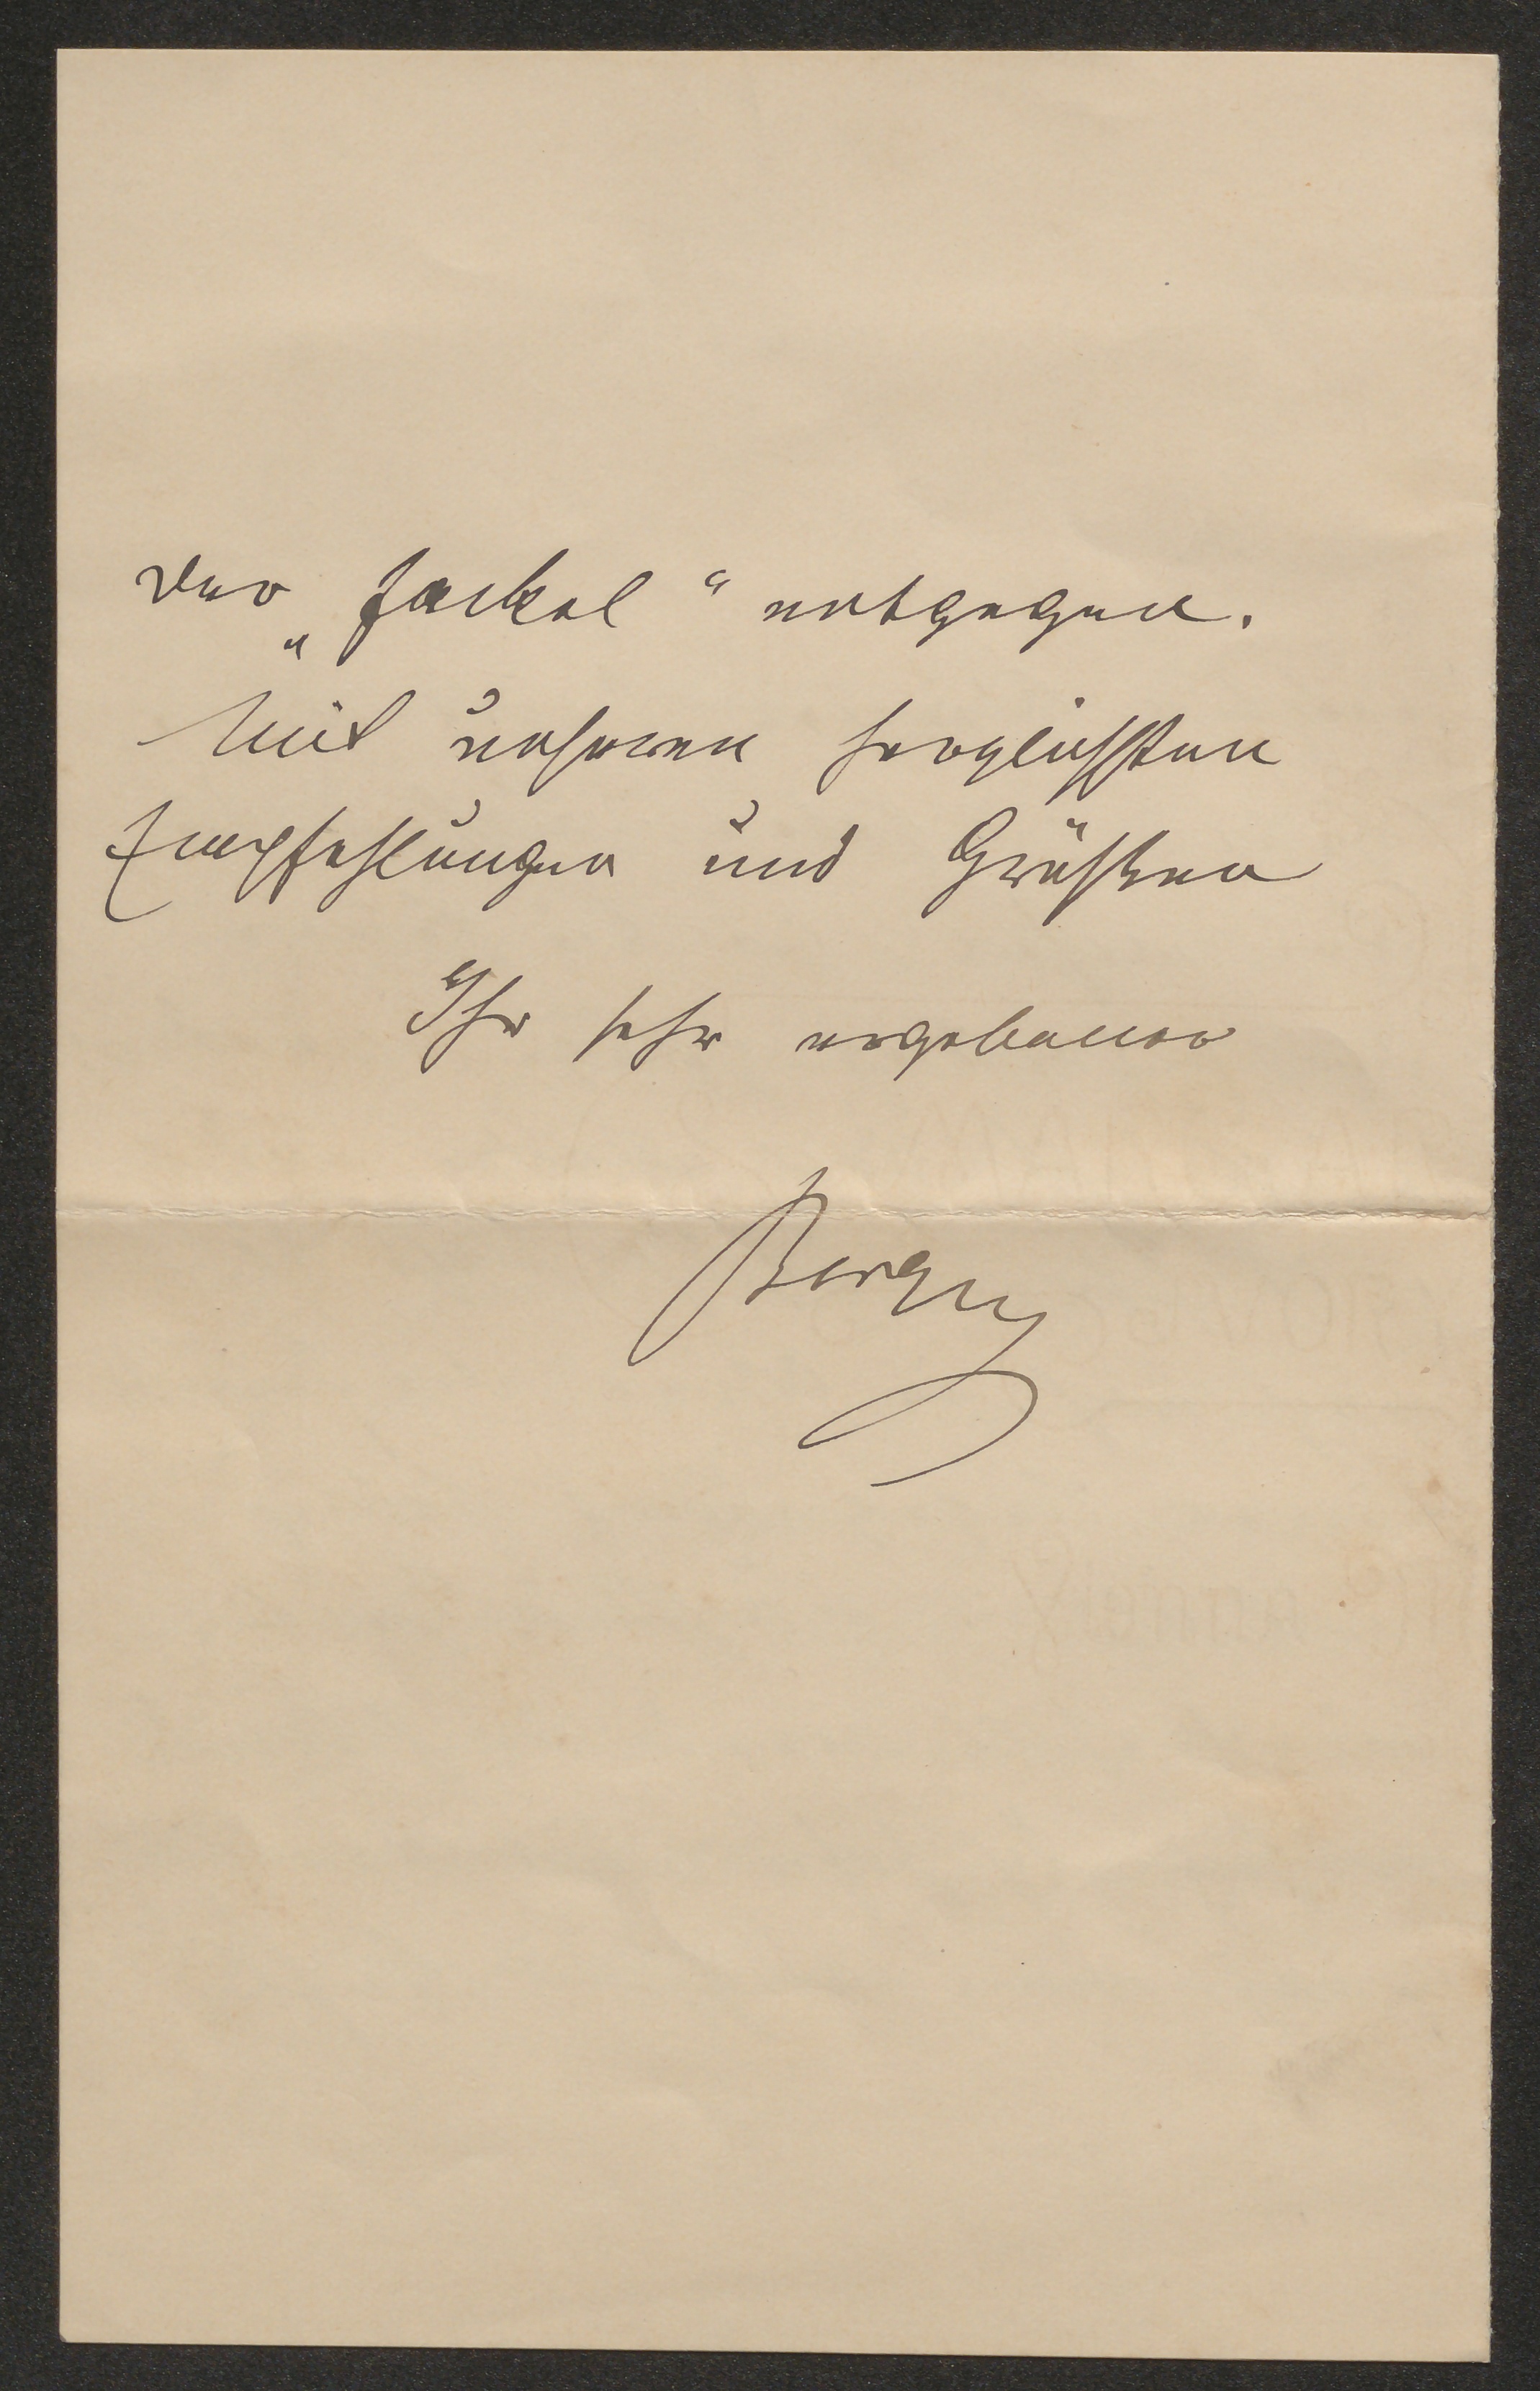 der „Fackel“ entgegen.
Mit unseren herzlichsten
Empfehlungen und Grüßen
Ihr sehr ergebener
Berger